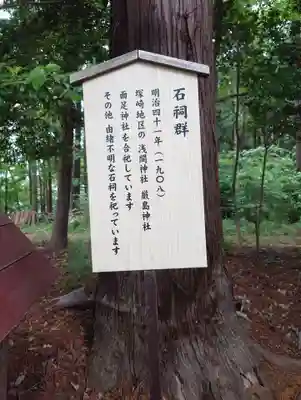 石祠群
明治四十一年（一九〇八）
塚崎地区の 浅間神社 厳島神社
面足神社を合祀しています
その他 由緒不明な石祠を祀っています